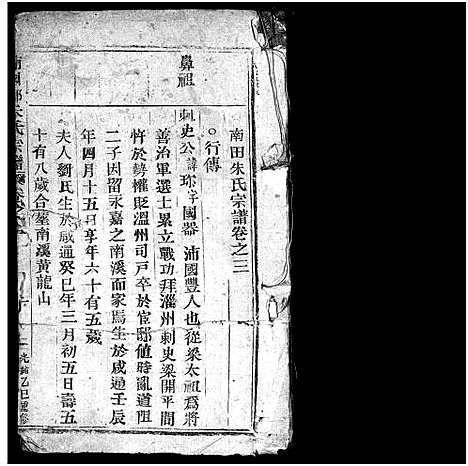 南田朱氏宗譜卷之三
○行傳
鼻祖
刺史公諱珎字國器沛國豐人也從梁太祖為將
善治軍選士累立戰功拜淄州刺史梁開平間
忤於勢權貶溫州司戶卒於官鄢值時亂道阻
二子因留永嘉之南溪而家焉生於咸通壬辰
年四月十五日享年六十有五歲
夫人劉氏生於咸通癸巳年三月初五日壽五
十有八歲合塟南溪黃龍山
朱氏宗譜
光緒乙巳重修